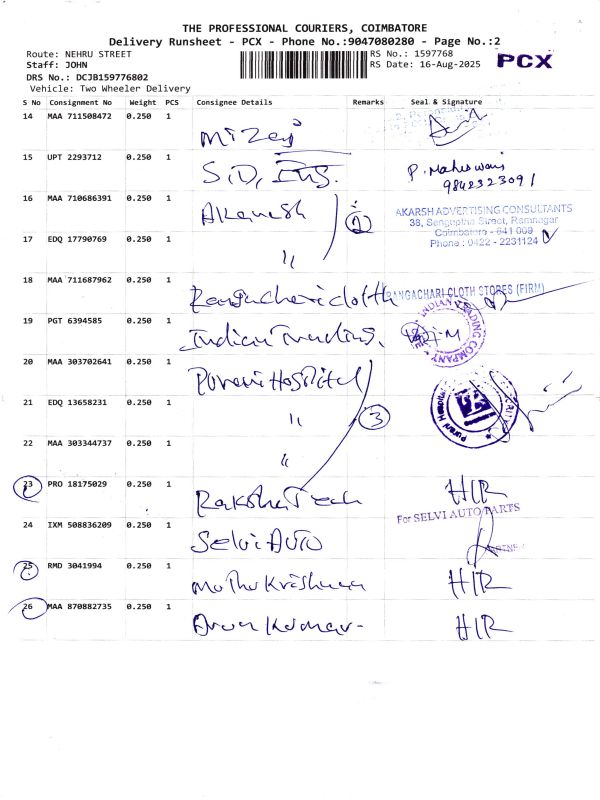 THE PROFESSIONAL COURIERS, COIMBATORE
Delivery Runsheet - PCX - Phone No.:9047080280 - Page No.:2
Route: NEHRU STREET RS No.: 1597768
Staff: JOHN RS Date: 16-Aug-2025 PCX
DRS No.: DCJB159776802
Vehicle: Two Wheeler Delivery
S No Consignment No Weight PCS Consignee Details Remarks Seal & Signature
14 MAA 711508472 0.250 1
15 UPT 2293712 0.250 1 S.D, Eng. P. Maheswari
9842323091
16 MAA 710686391 0.250 1 Akarsh 2 AKARSH ADVERTISING CONSULTANTS
38, Sengupta Street, Ramnagar
Coimbatore - 641 009
Phone : 0422 - 2231124
17 EDQ 17790769 0.250 1 "
18 MAA 711687962 0.250 1 Rangachari cloth RANGACHARI CLOTH STORES (FIRM)
19 PGT 6394585 0.250 1 Indian Trading. INDIAN TRADING COMPANY
20 MAA 303702641 0.250 1 Purani Hospital
21 EDQ 13658231 0.250 1 " 3 Purani Hospital
22 MAA 303344737 0.250 1 "
23 PRO 18175029 0.250 1 Raksha Tech HIR
24 IXM 508836209 0.250 1 Selvi Auto For SELVI AUTO PARTS
25 RMD 3041994 0.250 1 Muthu Krishnan HIR
26 MAA 870882735 0.250 1 Arun Kumar HIR